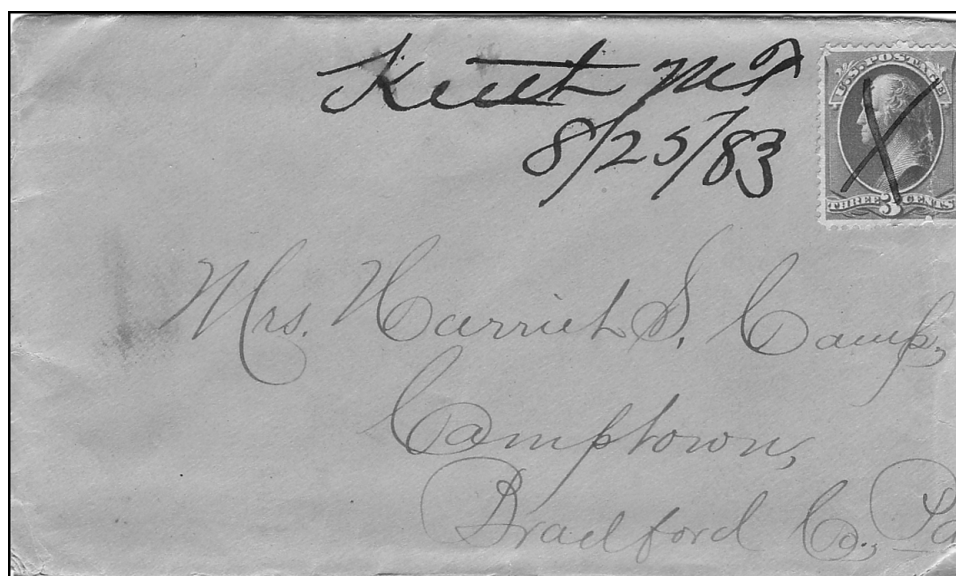 Keith M.T.
8/25/83
U.S. POSTAGE
THREE 3 CENTS
Mrs. Harriet S. Camp,
Camptown,
Bradford Co., Pa